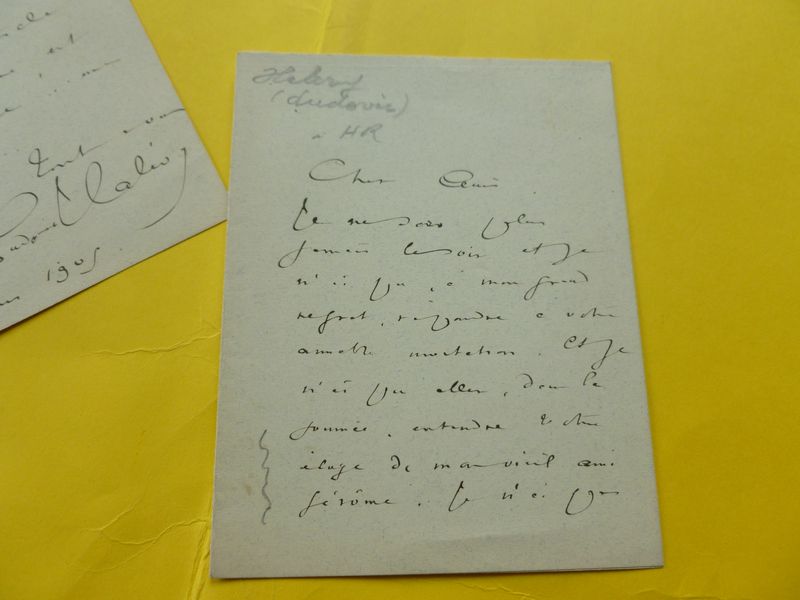 tout
Ludovic Halévy
1905.
Halevy
(Ludovic)
a HR
Cher ami
Je ne sors plus
jamais le soir et je
n'ai pu, à mon grand
regret, répondre à votre
aimable invitation. Et je
n'ai pu aller, dans la
journée, entendre votre
éloge de mon vieil ami
Gérôme. Je n'ai pas